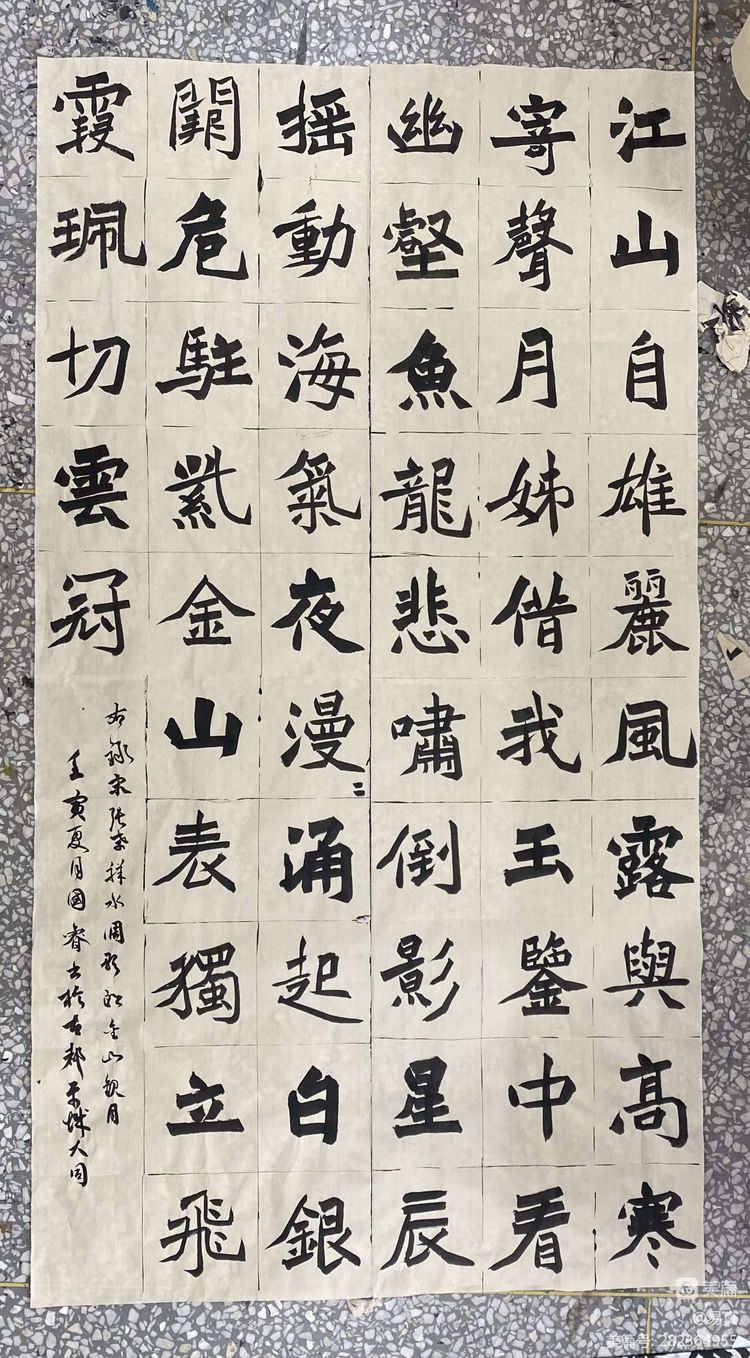 江山自雄麗風露與高寒
寄聲月姊借我玉鑒中看
幽壑魚龍悲嘯倒影星辰
搖動海氣夜漫二涌起白銀
闕危駐紫金山表獨立飛
霞珮切雲冠
右錄宋張孝祥水調歌頭金山觀月
壬寅夏月國睿書於古都平城大同
美篇
美篇号 282364955